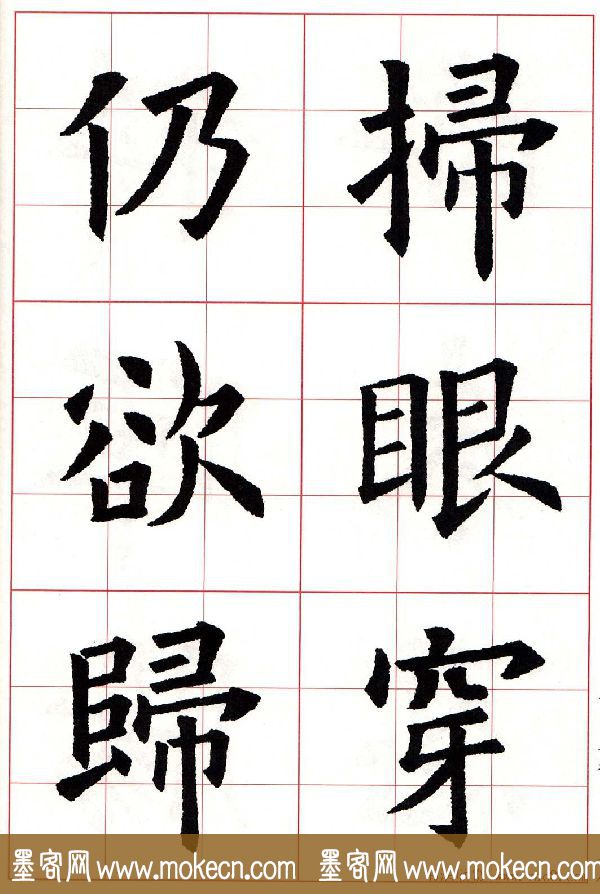 掃眼穿
仍欲歸
墨客网 www.mokecn.com 墨客网 www.mokecn.com